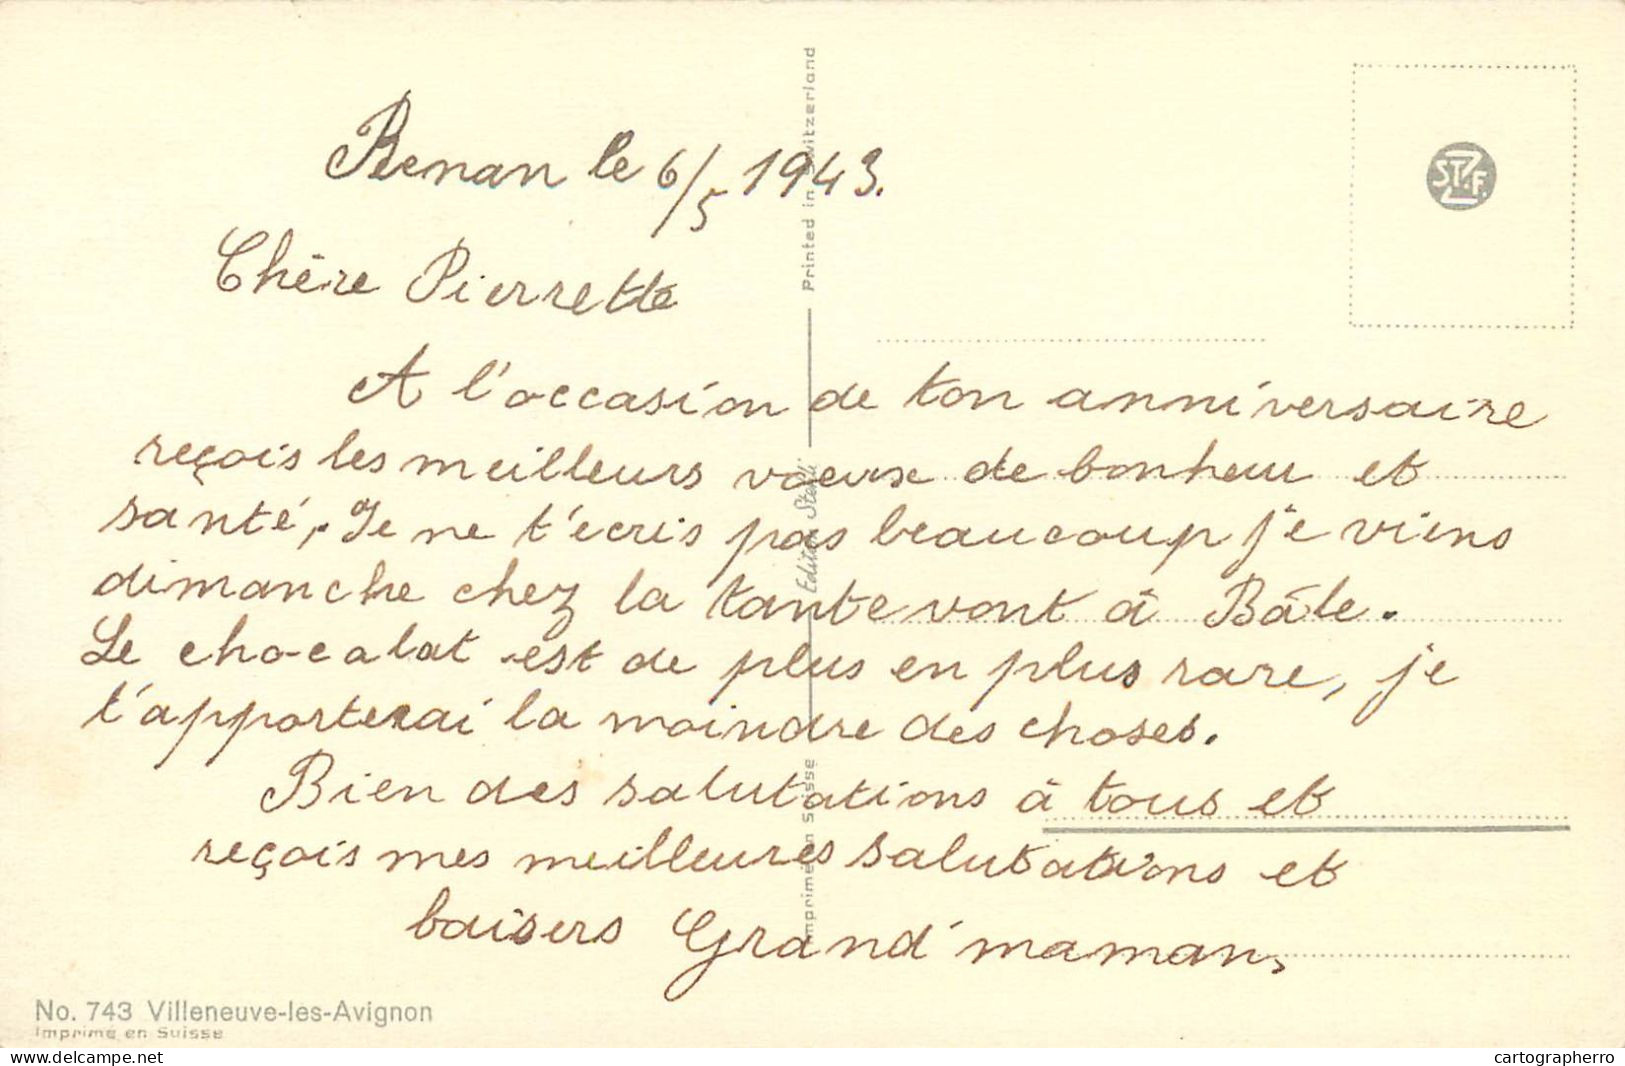 Renan le 6/5 1943.
Chère Pierrette
A l'occasion de ton anniversaire
reçois les meilleurs voeux de bonheur et
santé, Je ne t'écris pas beaucoup je viens
dimanche chez la tante vont à Bâle.
Le chocolat est de plus en plus rare, je
t'apporterai la moindre des choses.
Bien des salutations à tous et
reçois mes meilleures salutations et
baisers Grand'maman.
Imprimé en Suisse Edition Stehli. Printed in Switzerland
ST.Z.F.
No. 743 Villeneuve-les-Avignon
Imprimé en Suisse
delcampe.net
cartographerro